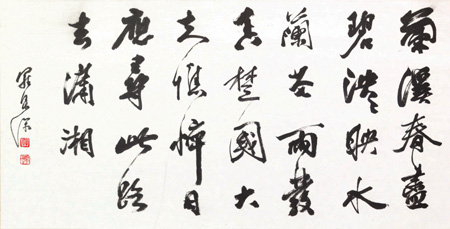 蘭溪春盡
碧泱々映水
蘭花雨發
香楚國大
夫憔悴日
應尋此路
去瀟湘